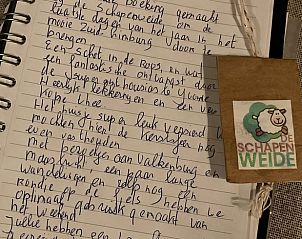 boeking gemaakt
de Schapenweide om de
laatste dagen van het jaar in het
mooie Zuid Limburg door te
brengen
Een schot in de roos, en wat
een fantastische ontvangst door
de super enthousiaste Yvonne
Heerlijk lekkernijen en een
kopje thee
Het huisje super leuk versierd
mochten hier de kerstdagen nog
even
met bezoekjes aan Valkenburg en
Maastricht en een paar lange
wandelingen en zelfs nog een
rondje op de fiets hebben we
optimaal gebruik gemaakt van
het weekend
Jullie hebben een
DE
SCHAPEN
WEIDE